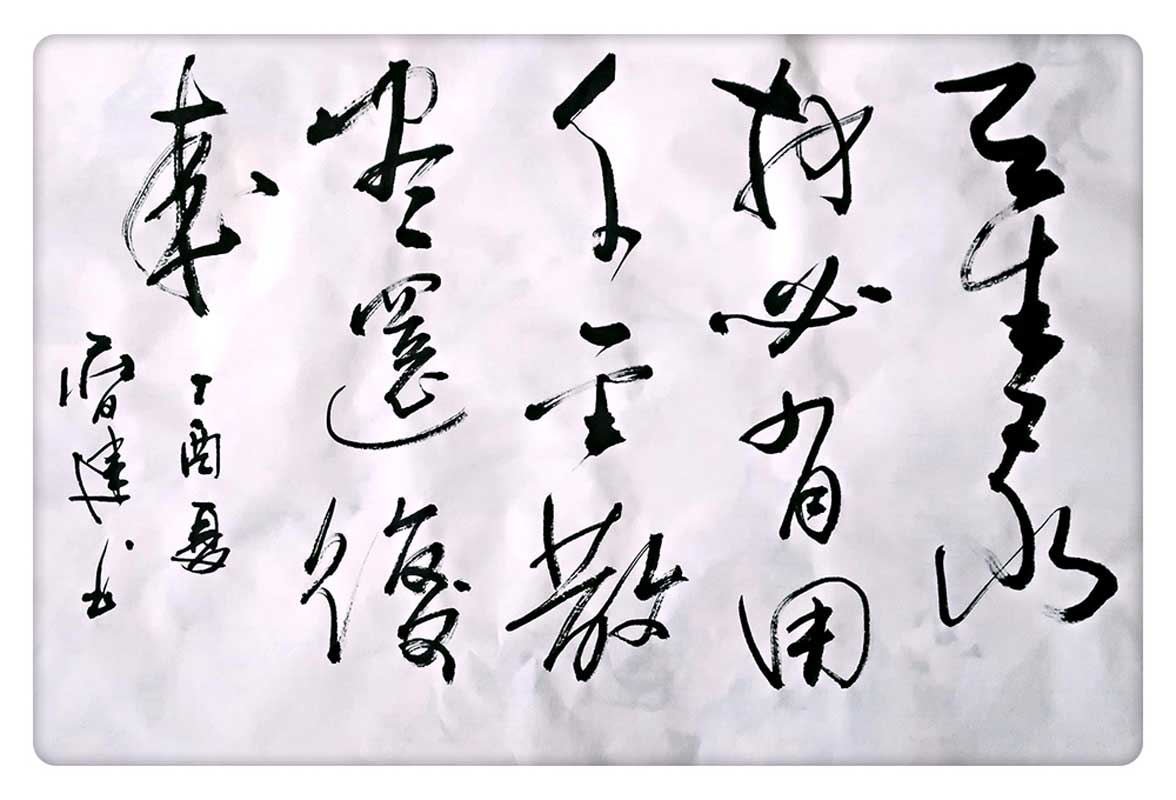 天生我
材必有用
千金散
尽還復
来
丁酉夏
建书